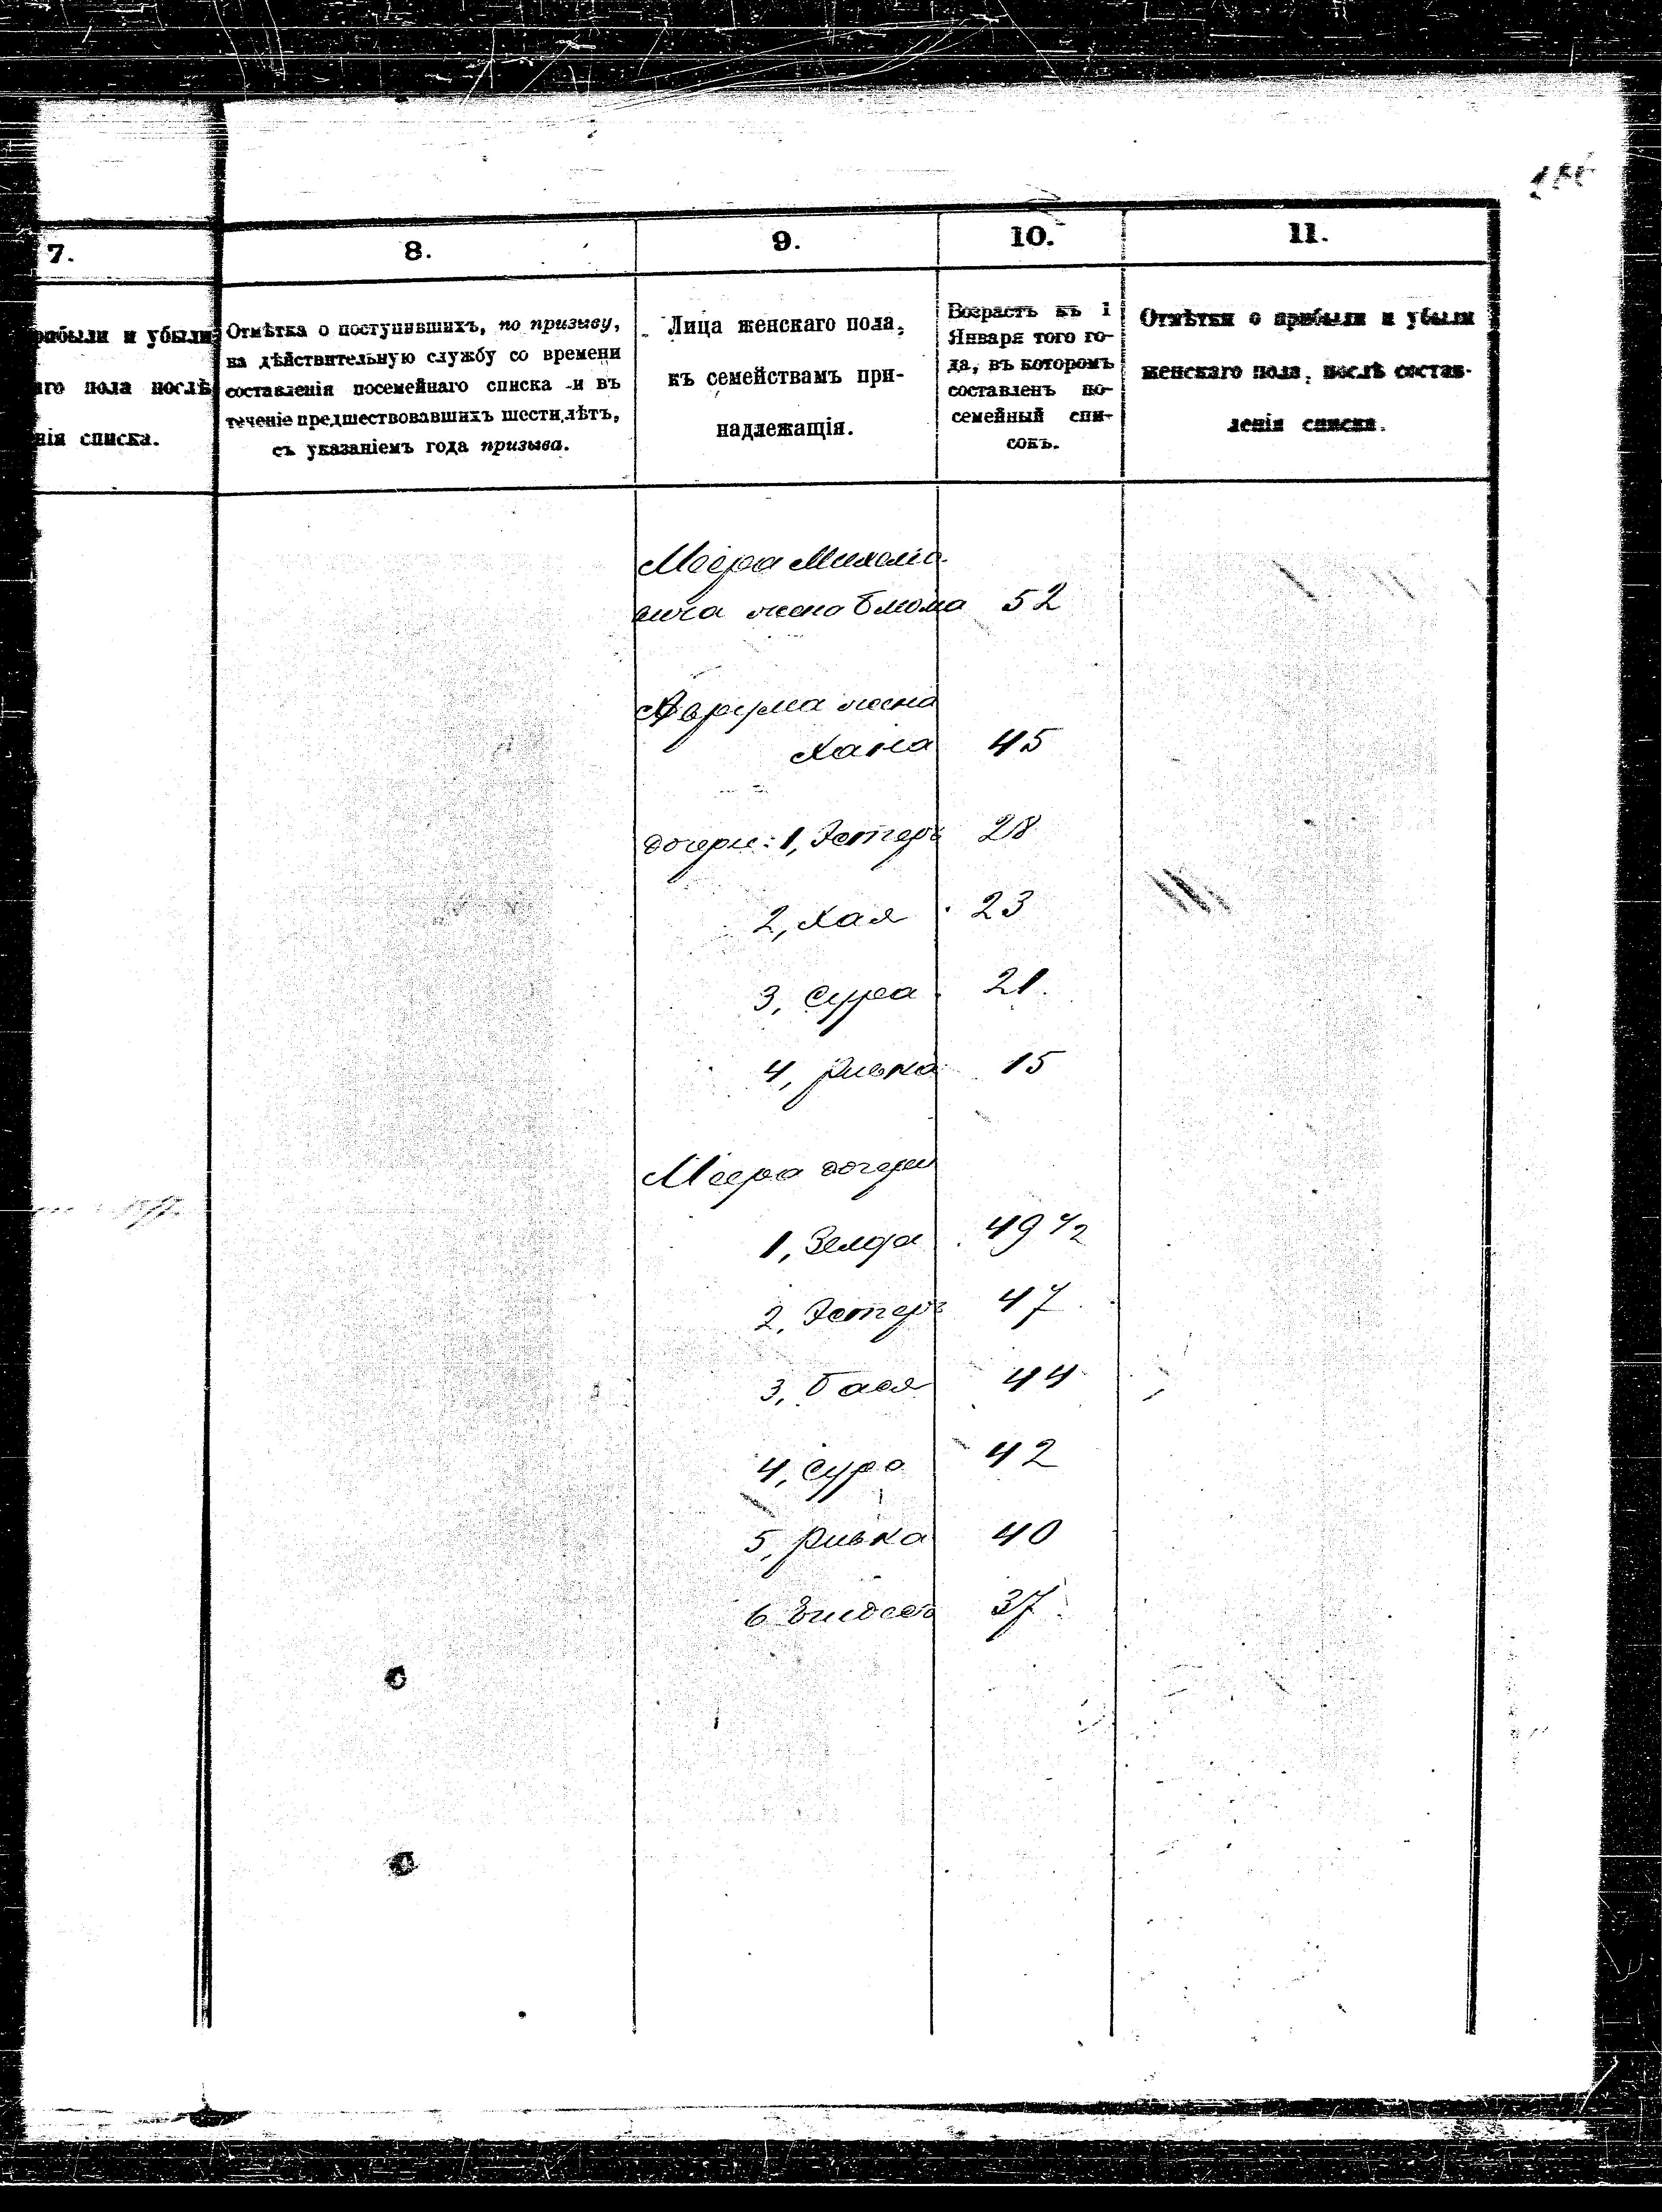 7.
8.
9.
10.
11.
рибыли и убыли
аго пола послѣ
нія списка.
Отмѣтка о поступившихъ, по призыву,
на дѣйствительную службу со времени
составленія посемейнаго списка и въ
теченіе предшествовавшихъ шести лѣтъ,
съ указаніемъ года призыва.
Лица женскаго пола,
къ семействамъ при-
надлежащія.
Возрастъ къ 1
Января того го-
да, въ которомъ
составленъ по-
семейный спи-
сокъ.
Отмѣтки о прибыли и убыли
женскаго пола, послѣ состав-
ленія списка.
Меера Михелѣо-
вича жена Блюма 52
Аврума жена
Хана 45
дочери: 1, Эстеръ 28
2, Хая 23
3, Сура 21.
4, Ривка 15
Меера дочери
1, Зелда 49 1/2
2, Эстеръ 47
3, Бася 44
4, Сура 42
5, Ривка 40
6 37